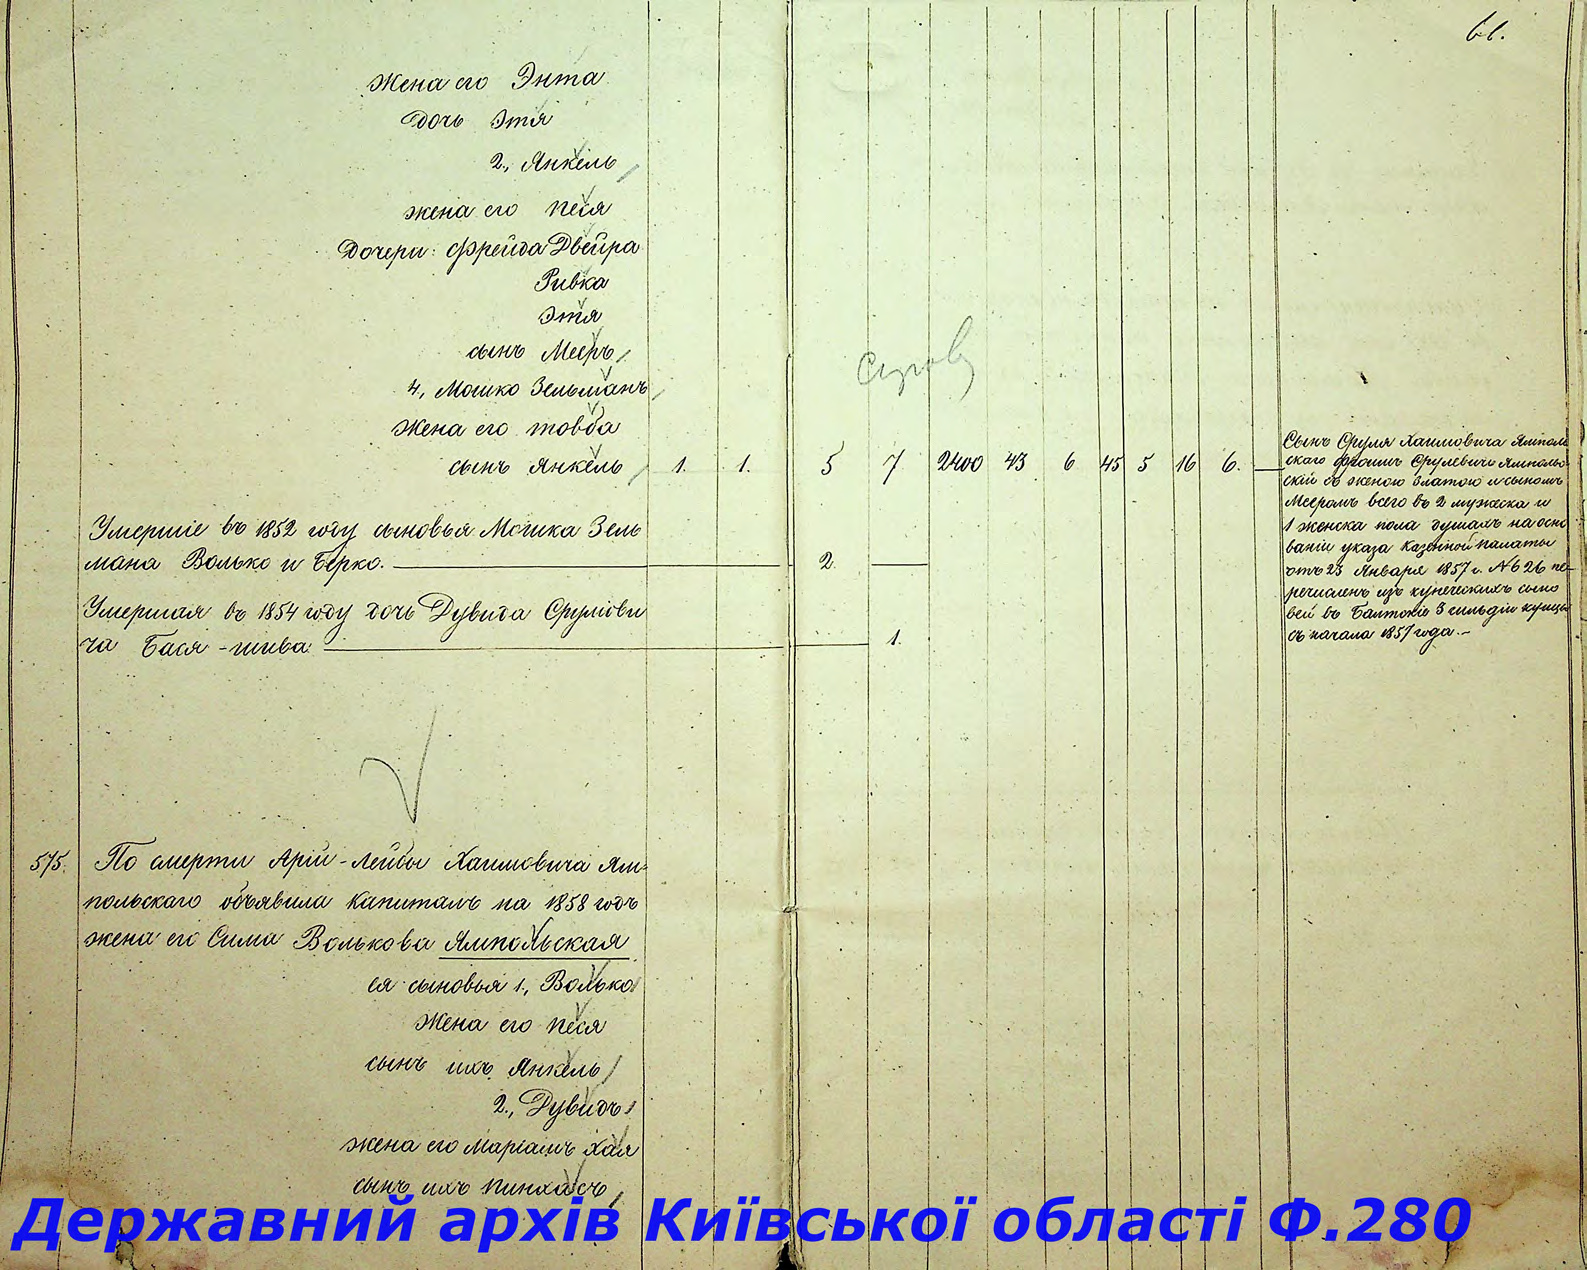 61.
Жена его Энта
дочь Этя
2., Янкель
жена его Песя
Дочери: Фрейда Двейра
Ривка
Этя
сынъ Мееръ
4, Мошко Зельманъ
Жена его Товба
сынъ Янкель 1. 1. 5 7 2400 43 6 45 5 16 6.
Умершіе въ 1852 году сыновья Мошка Зель
мана Волько и Берко. 2.
Умершая въ 1854 году дочь Дувида Срулiови
ча Бася-Шива 1.
Сынъ Сруля Хаимовича Ямполь
скаго Фроимъ Срулевичъ Ямполь
скій съ женою Златою и сыномъ
Мееромъ всего въ 2 мужеска и
1 женска пола душахъ на осно
ваніи указа Казенной палаты
отъ 23 Января 1857 г. № 626 пе-
речисленъ изъ купеческихъ сыно
вей въ Балтскіе 3 гильдіи купцы
съ начала 1857 года.-
575. По смерти Арій-Лейбы Хаимовича Ям-
польскаго объявила капиталъ на 1858 годъ
жена его Сима Волькова Ямпольская
ея сыновья 1., Волько
Жена его Песя
сынъ ихъ Янкель
2., Дувидъ
жена его Маріамъ Хая
сынъ ихъ Пинхасъ
Державний архів Київської області Ф.280